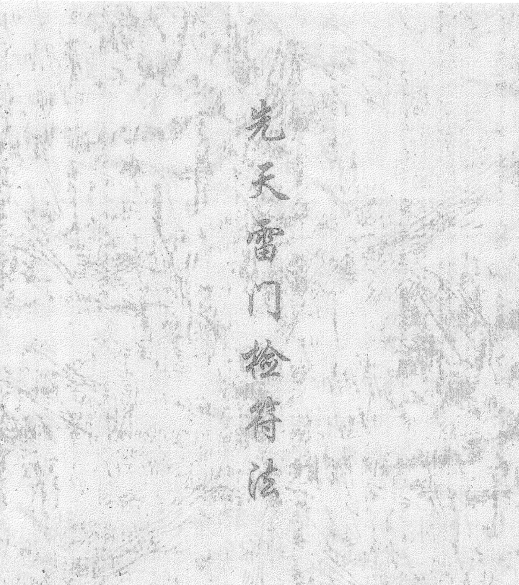 先天雷门捡符法